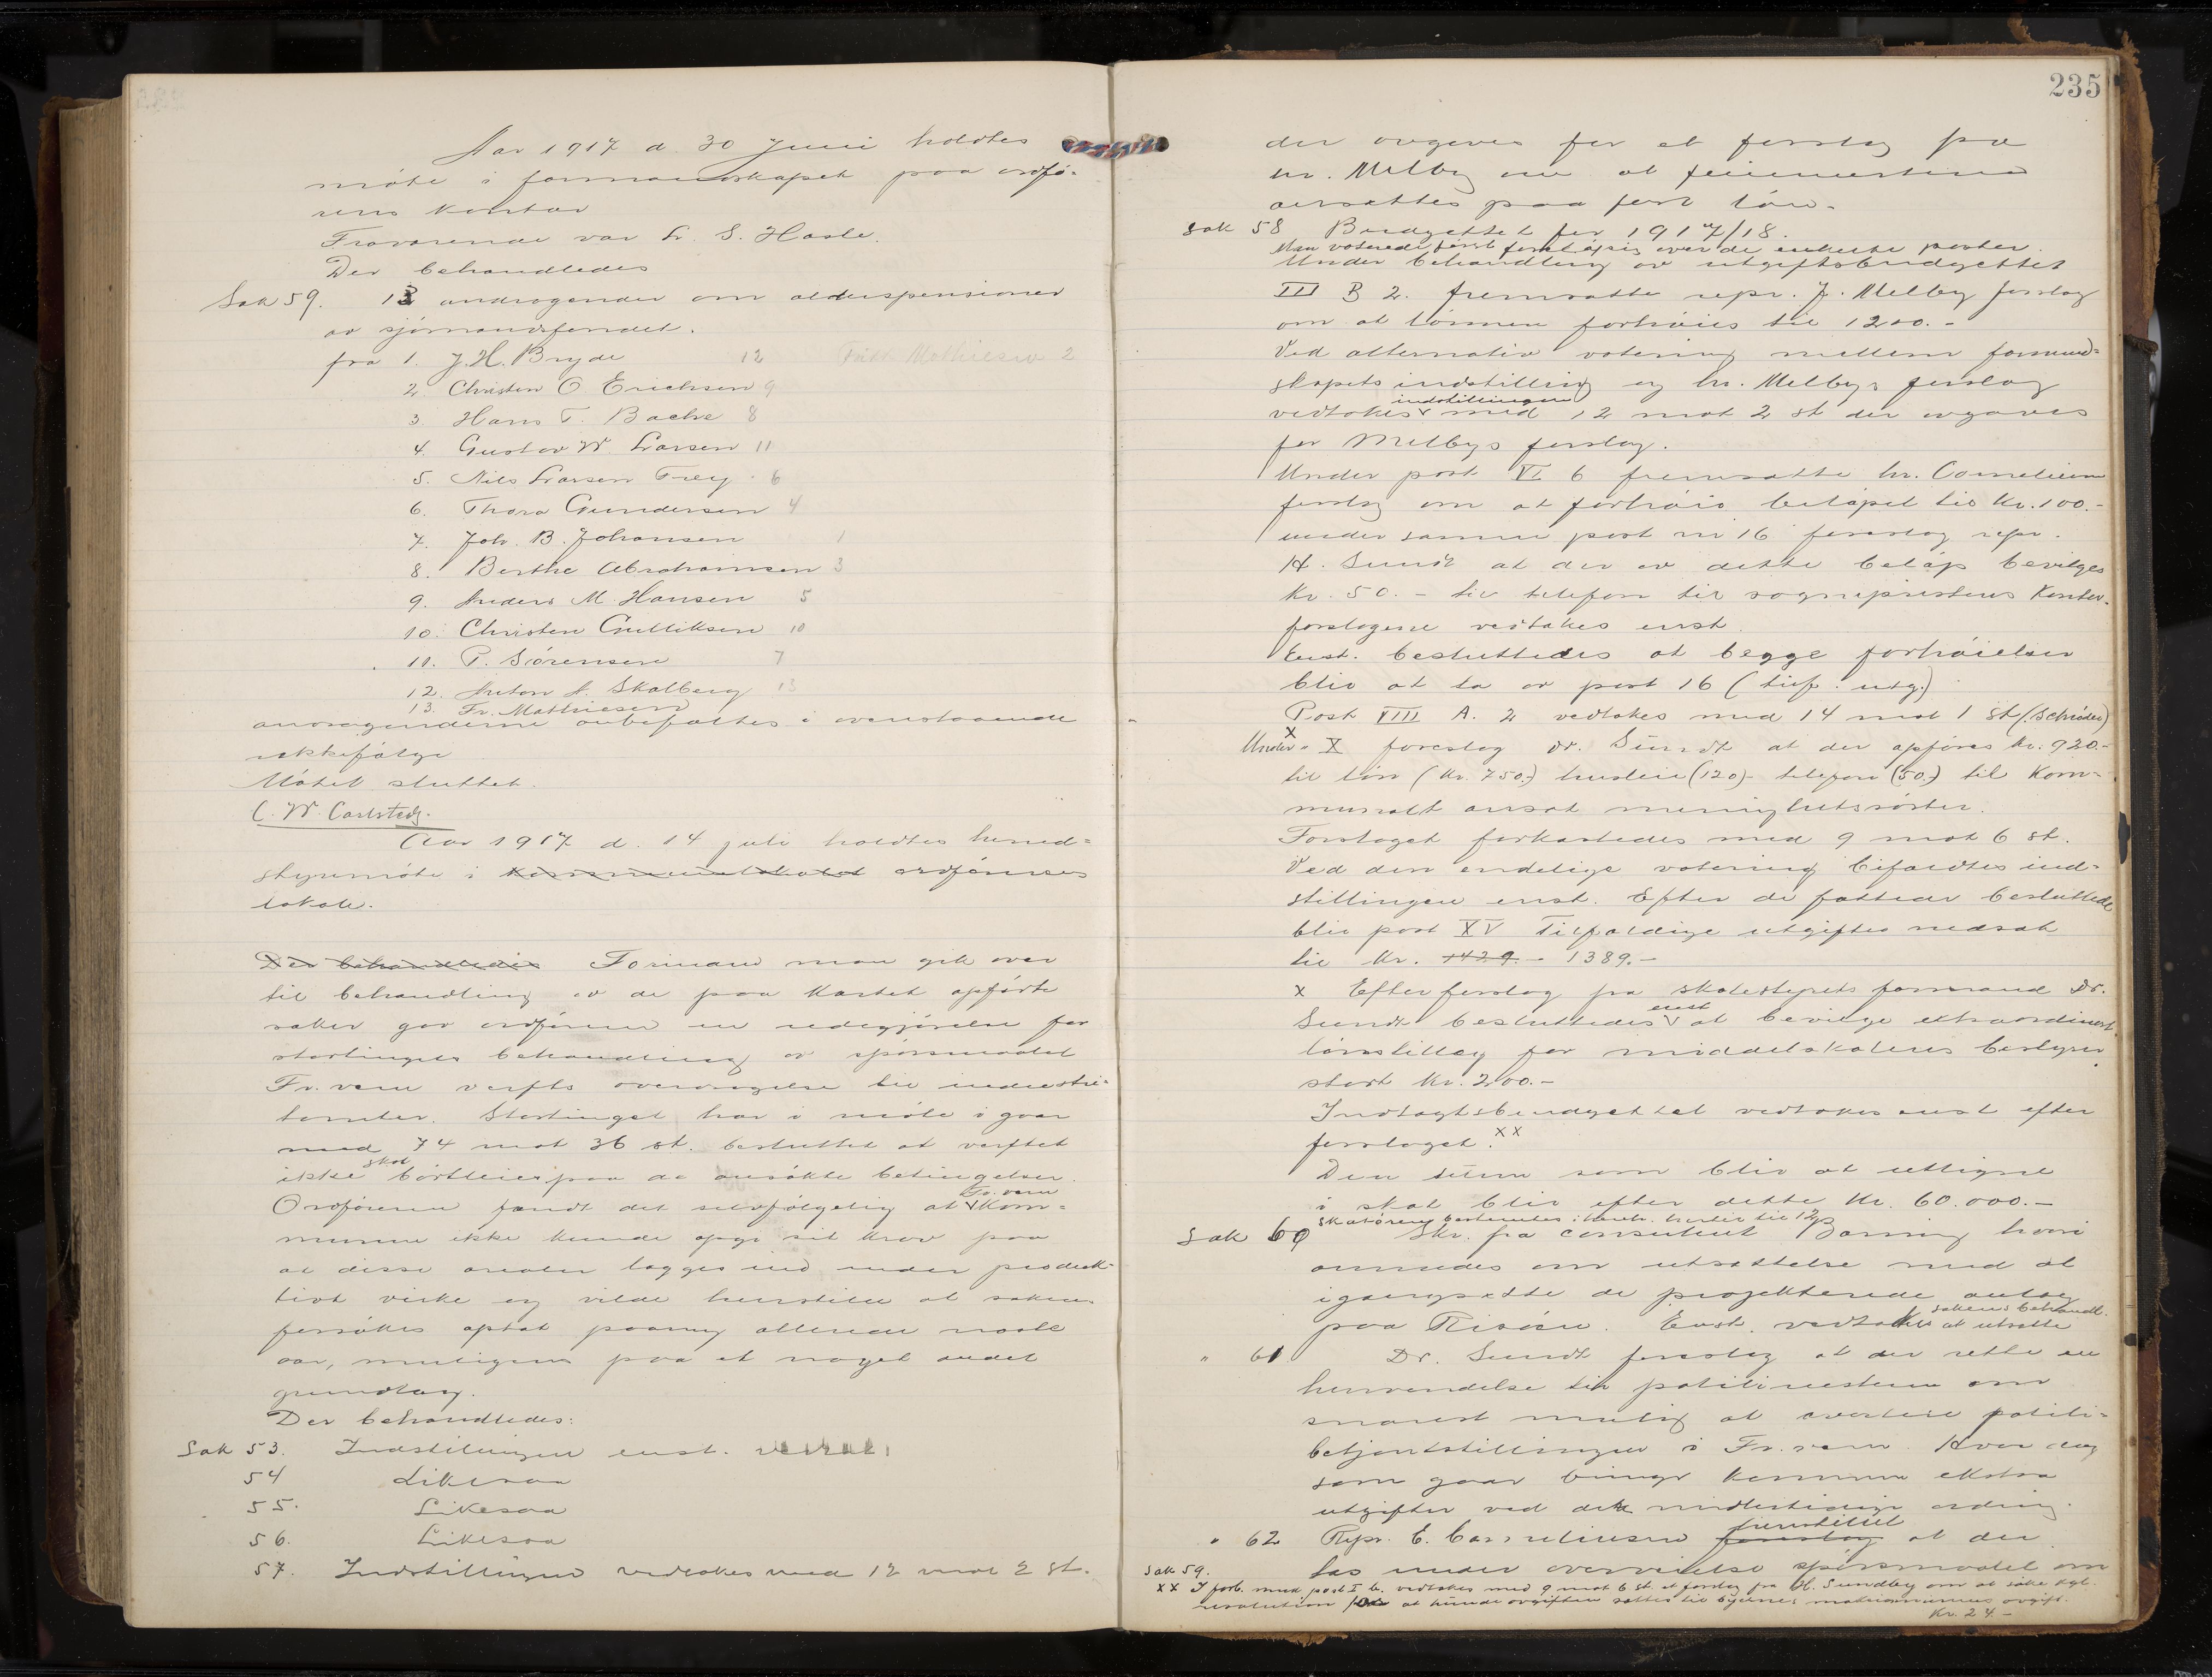 Aar 1917 d. 30 Juni holdtes
möte i formandskapet paa ordfö-
rens kontor
Fraværende var L. S. Hasle.
Der behandledes
Sak 59. 13 andragender om alderspensioner
av sjömandsfondet.
fra 1. J. H. Bryde 12 Fritt Mathiesen 2
2. Christen O Erichsen 9
3. Hans T. Bache 8
4. Gustav W. Larsen 11
5. Nils Larsen Frey 6
6. Thora Gundersen 4
7. Joh. B. Johansen 1
8. Berthe Abrahamsen 3
9. Anders M. Hansen 5
10. Christen Gulliksen 10
11. P. Sörensen 7
12. Anton A. Skalberg 13
13. Fr. Mathiesen
andragenderne anbefaltes i ovenstaaende
rækkefölge
Mötet sluttet.
C. W. Carlstedt.
Aar 1917 d. 14 juli holdtes herred-
styremöte i kommunelokalet ordförerens
lokale.
Der behandledes Forinden man gik over
til behandling av de paa kartet opförte
saker gav ordföreren en redegjörelse for
stortingets behandling av spörsmaalet
Fr.værn verfts overdragelse til industri-
tomter. Stortinget har i möte igaar
med 74 mot 36 st. besluttet at verftet
ikke skal bortleies paa de ansökte betingelser.
Ordföreren fandt det selvfölgelig at Fr.værn kom-
mune ikke kunde opgi sit krav paa
at disse arealer lægges ind under produk-
tivt virke og vilde henstille at saken
forsökes optat paany allerede næste
aar, muligens paa et noget andet
grundlag.
Der behandledes:
Sak 53. Indstillingen enst. vedtat.
54 Likesaa
55. Likesaa
56. Likesaa
57. Indstillingen vedtakes med 12 mot 2 st.
235
der avgaves for et forslag fra
hr. Melby om at feiermesteren
ansættes paa fast lön.
Sak 58 Budgettet for 1917/18.
Man voterede först forslagsvis over de enkelte poster.
Under behandling av utgiftsbudgettet
III B 2. fremsatte repr. J. Melby forslag
om at lönnen forhöies til 1200.-
Ved alternativ votering mellem formand-
skapets indstilling og hr. Melbys forslag
vedtokes indstillingen med 12 mot 2 st. der avgaves
for Melbys forslag.
Under post VI 6 fremsatte hr. Corneliusen
forslag om at forhöie belöpet til Kr. 100.-
under samme post nr 16 foreslog repr.
H. Sundt at der av dette belöp bevilges
Kr. 50.- til telefon til sogneprestens kontor.
forslagene vedtokes enst.
Enst. besluttedes at begge forhöielser
blir at ta av post 16 (tilf. utg.)
Post VIII A. 2 vedtokes med 14 mot 1 st. (Schröder)
x
Under " X foreslog dr. Sundt at der opföres Kr. 920.-
til lön (Kr. 750.-) husleie (120)- telefon (50.-) til kom-
munalt ansat menighetssöster.
Forslaget forkastedes med 9 mot 6 st.
Ved den endelige votering bifaldtes ind-
stillingen enst. Efter de fattede beslutte
blir post XV Tilfældige utgifter nedsat
til Kr. 1429.- 1389.-
x Efter forslag fra skolestyrets formand Dr.
Sundt besluttedes enst at bevilge ekstraordinært
lönstillæg for middelskolens bestyrer
stort Kr. 200.-
Indtægtsbudgettet vedtokes enst efter
forslaget. xx
Den sum som blir at utligne
i skat blir efter dette Kr. 60.000.-
Skatören bestemtes
Sak 60 Skr. fra consulent Barning hvori
anmodes om utsættelse med at
igangsætte de projekterede anlæg
paa Risöen. Enst. vedtokes sakens behandl. at utsætte
" 61 Dr. Sundt foreslog at der rettes en
henvendelse til politimesteren om
snarest mulig at avertere politi-
betjentstillingen i Fr.værn. Hver dag
som gaar bringer kommunen ekstra
utgifter ved den midlertidige ordning.
" 62 Repr. E. Corneliusen foreslog fremstillet at der
tas under overveielse spörsmaalet om
Sak 59.
xx I forb. med post I b. vedtokes med 9 mot 6 st. et forslag fra H. Sundby om at söke kgl.
resolution for at hundeavgiften sættes til byernes avgift.
Kr. 24.-